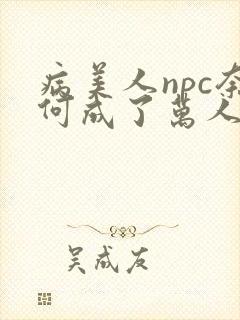 病美人npc奈
何成了萬人
吴成友